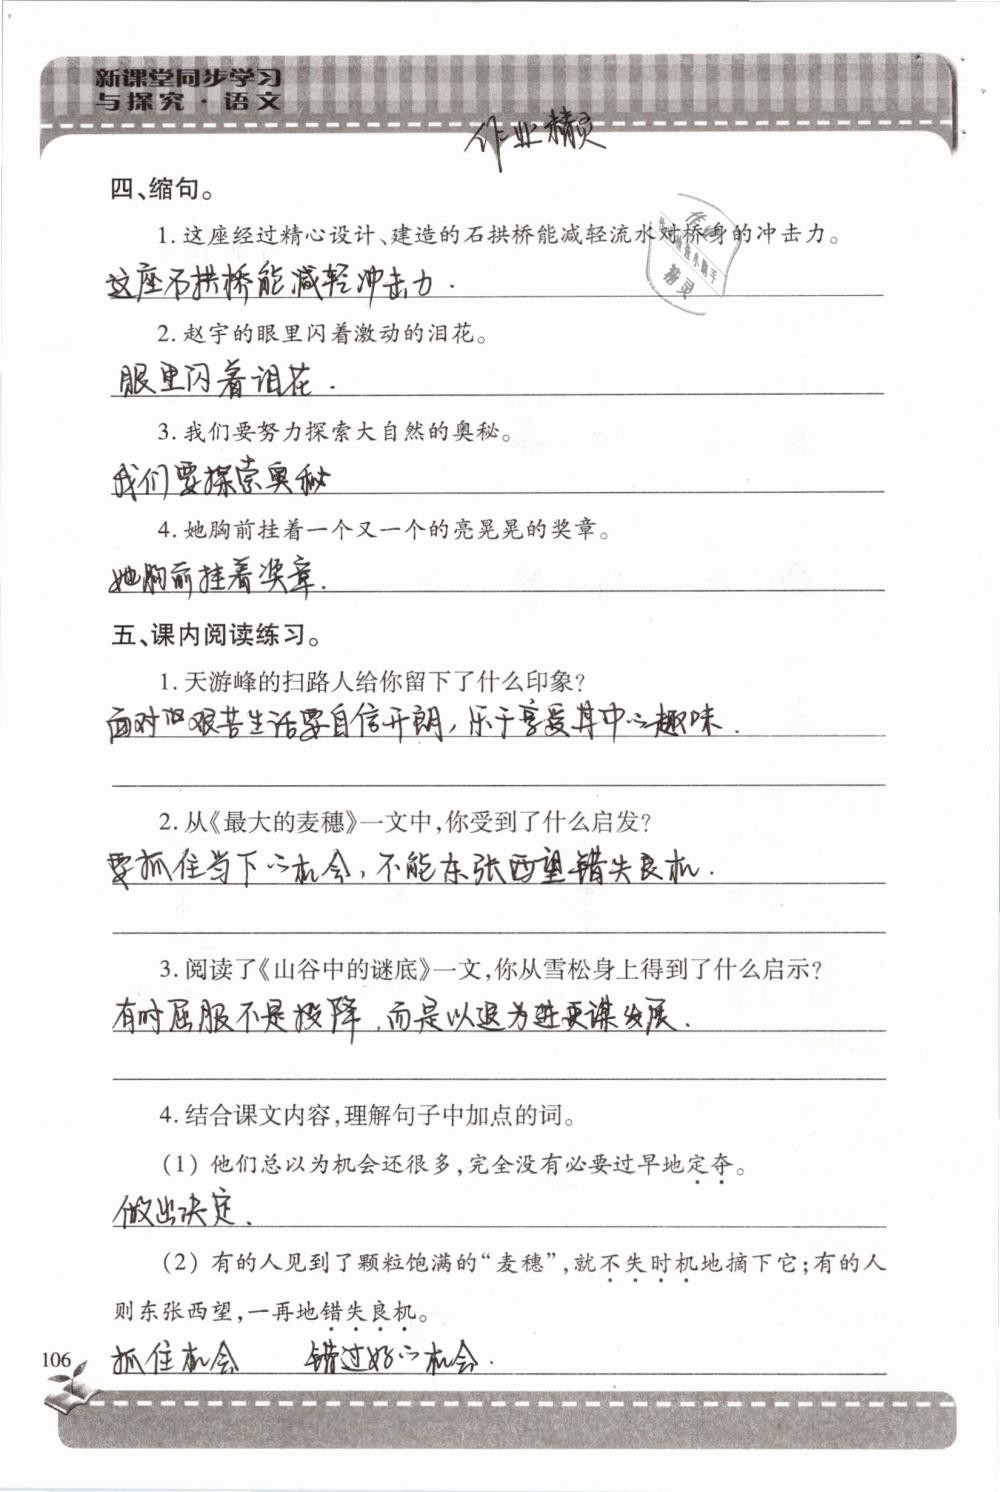 新课堂同步学习
与探究·语文
作业精灵
四、缩句。
1.这座经过精心设计、建造的石拱桥能减轻流水对桥身的冲击力。
这座石拱桥能减轻冲击力.
2.赵宇的眼里闪着激动的泪花。
眼里闪着泪花.
3.我们要努力探索大自然的奥秘。
我们要探索奥秘
4.她胸前挂着一个又一个的亮晃晃的奖章。
她胸前挂着奖章.
五、课内阅读练习。
1.天游峰的扫路人给你留下了什么印象?
面对艰苦生活要自信开朗,乐于享受其中的趣味.
2.从《最大的麦穗》一文中,你受到了什么启发?
要抓住当下的机会,不能东张西望错失良机.
3.阅读了《山谷中的谜底》一文,你从雪松身上得到了什么启示?
有时屈服不是投降,而是以退为进更谋发展.
4.结合课文内容,理解句子中加点的词。
(1) 他们总以为机会还很多,完全没有必要过早地定夺。
做出决定.
(2) 有的人见到了颗粒饱满的“麦穗”,就不失时机地摘下它;有的人
则东张西望,一再地错失良机。
抓住机会 错过好的机会.
106